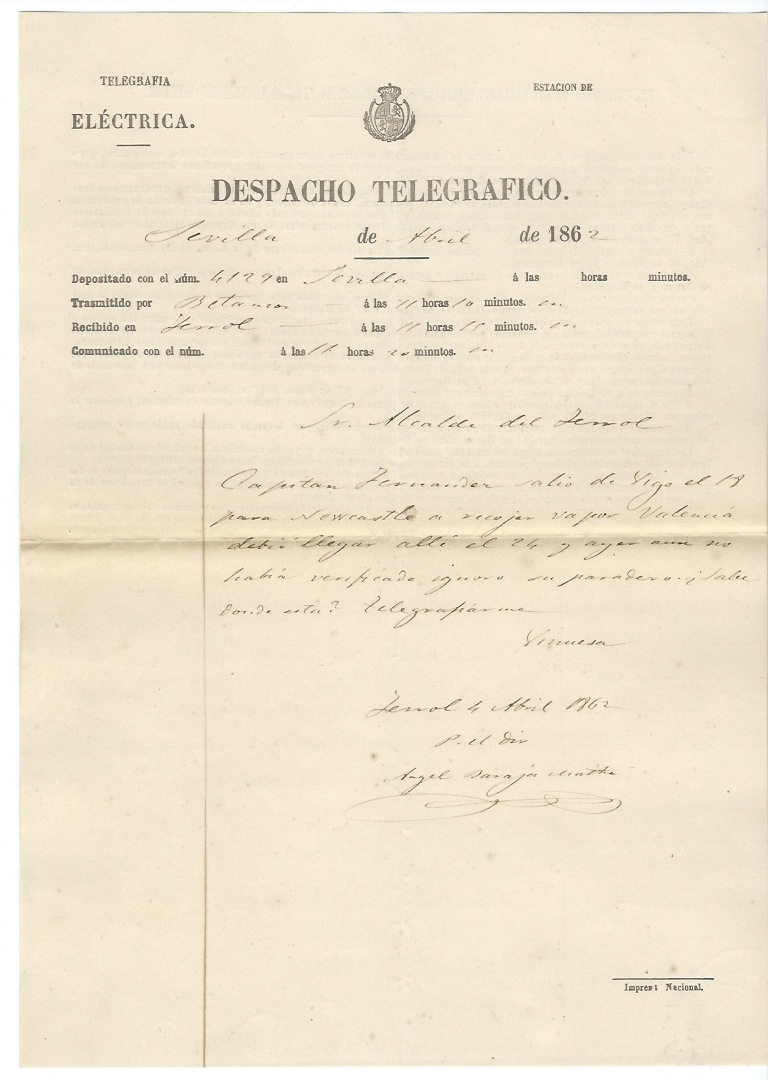 TELEGRAFIA
ELÉCTRICA.
ESTACION DE
DESPACHO TELEGRAFICO.
Sevilla de Abril de 1862
Depositado con el núm. 4129 en Sevilla á las horas minutos.
Trasmitido por Betanzos á las 11 horas 10 minutos. m
Recibido en Ferrol á las 11 horas 15 minutos. m
Comunicado con el núm. á las 11 horas 20 minutos. m
Sr. Alcalde del Ferrol
Capitan Fernandez salio de Vigo el 18
para Newcastle a recojer vapor Valencia
debió llegar allí el 24 y ayer aun no
había verificado ignoro su paradero ¿Sabe
donde esta? Telegrafiarme
Vinuesa
Ferrol 4 Abril 1862
P. el Dir
Angel
Imprent Nacional.